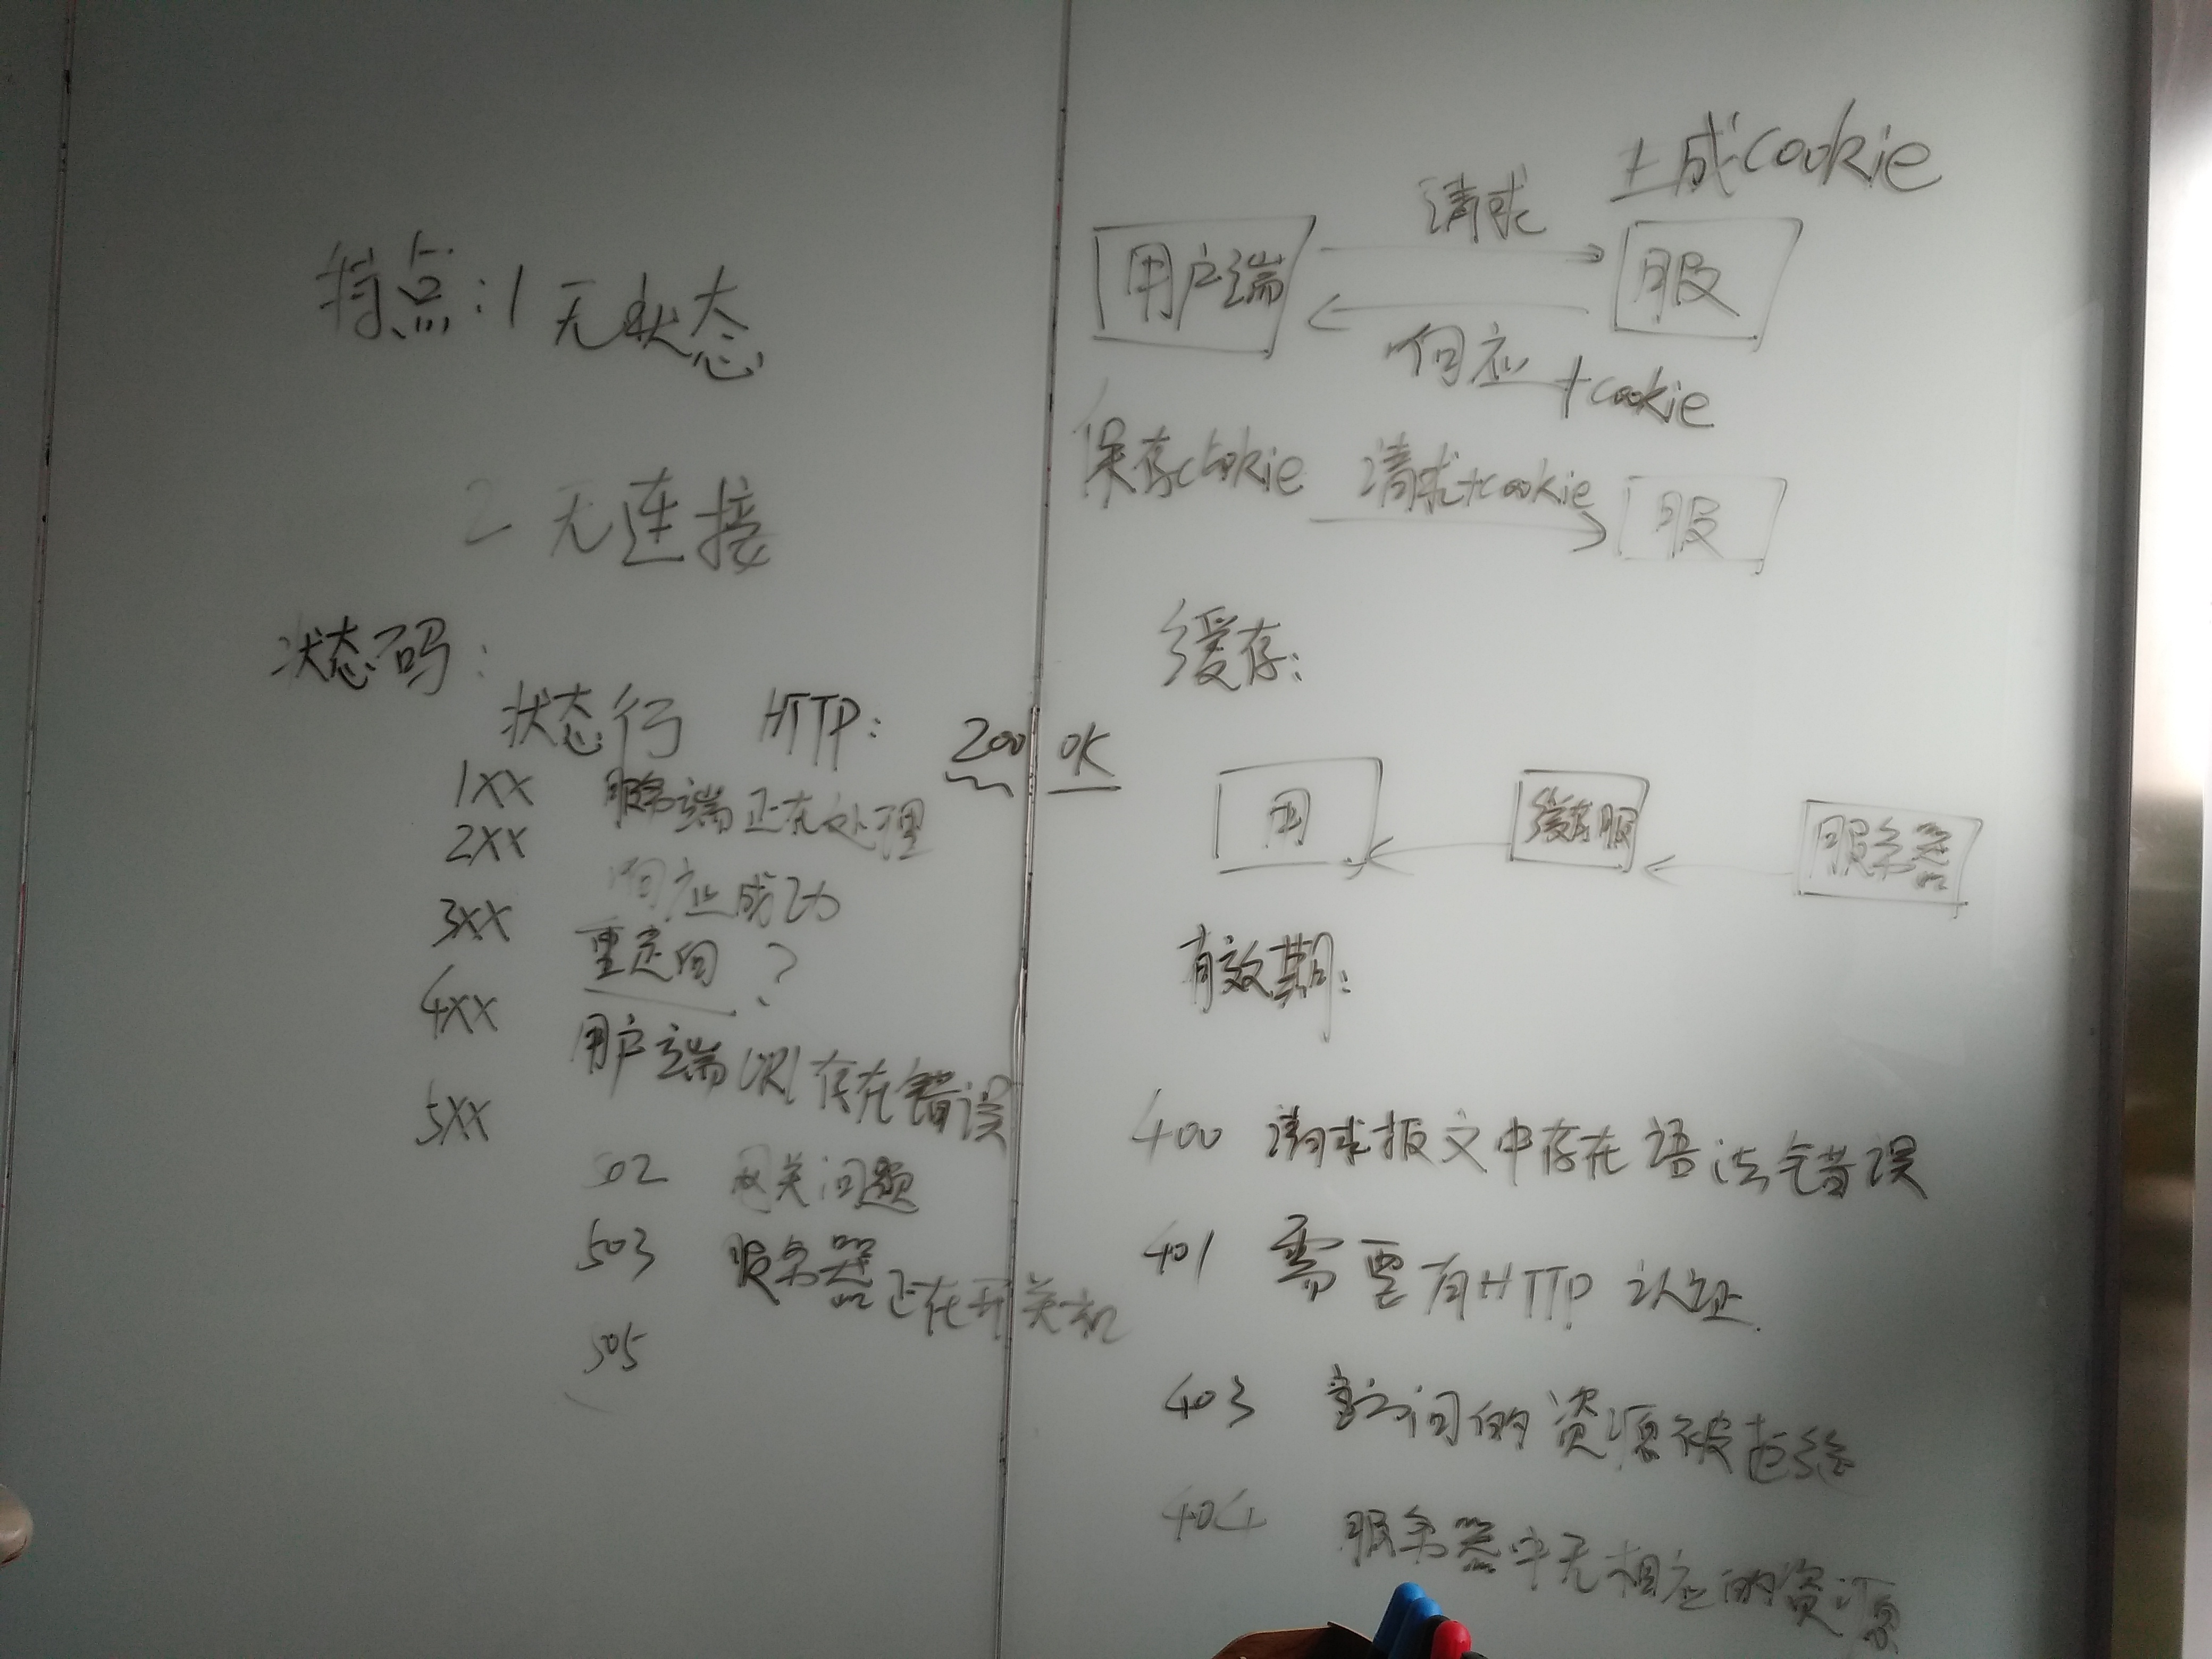 特点:1 无状态
2 无连接
状态码:
状态行 HTTP: 200 OK
1XX 服务端正在处理
2XX 响应成功
3XX 重定向?
4XX 用户端URL存在错误
5XX
502 网关问题
503 服务器正在开关机
505
生成cookie
请求
用户端 服
响应+cookie
保存cookie 请求+cookie 服
缓存:
用 缓存服 服务器
有效期:
400 请求报文中存在语法错误
401 需要有HTTP认证
403 访问的资源被拒绝
404 服务器中无相应的资源